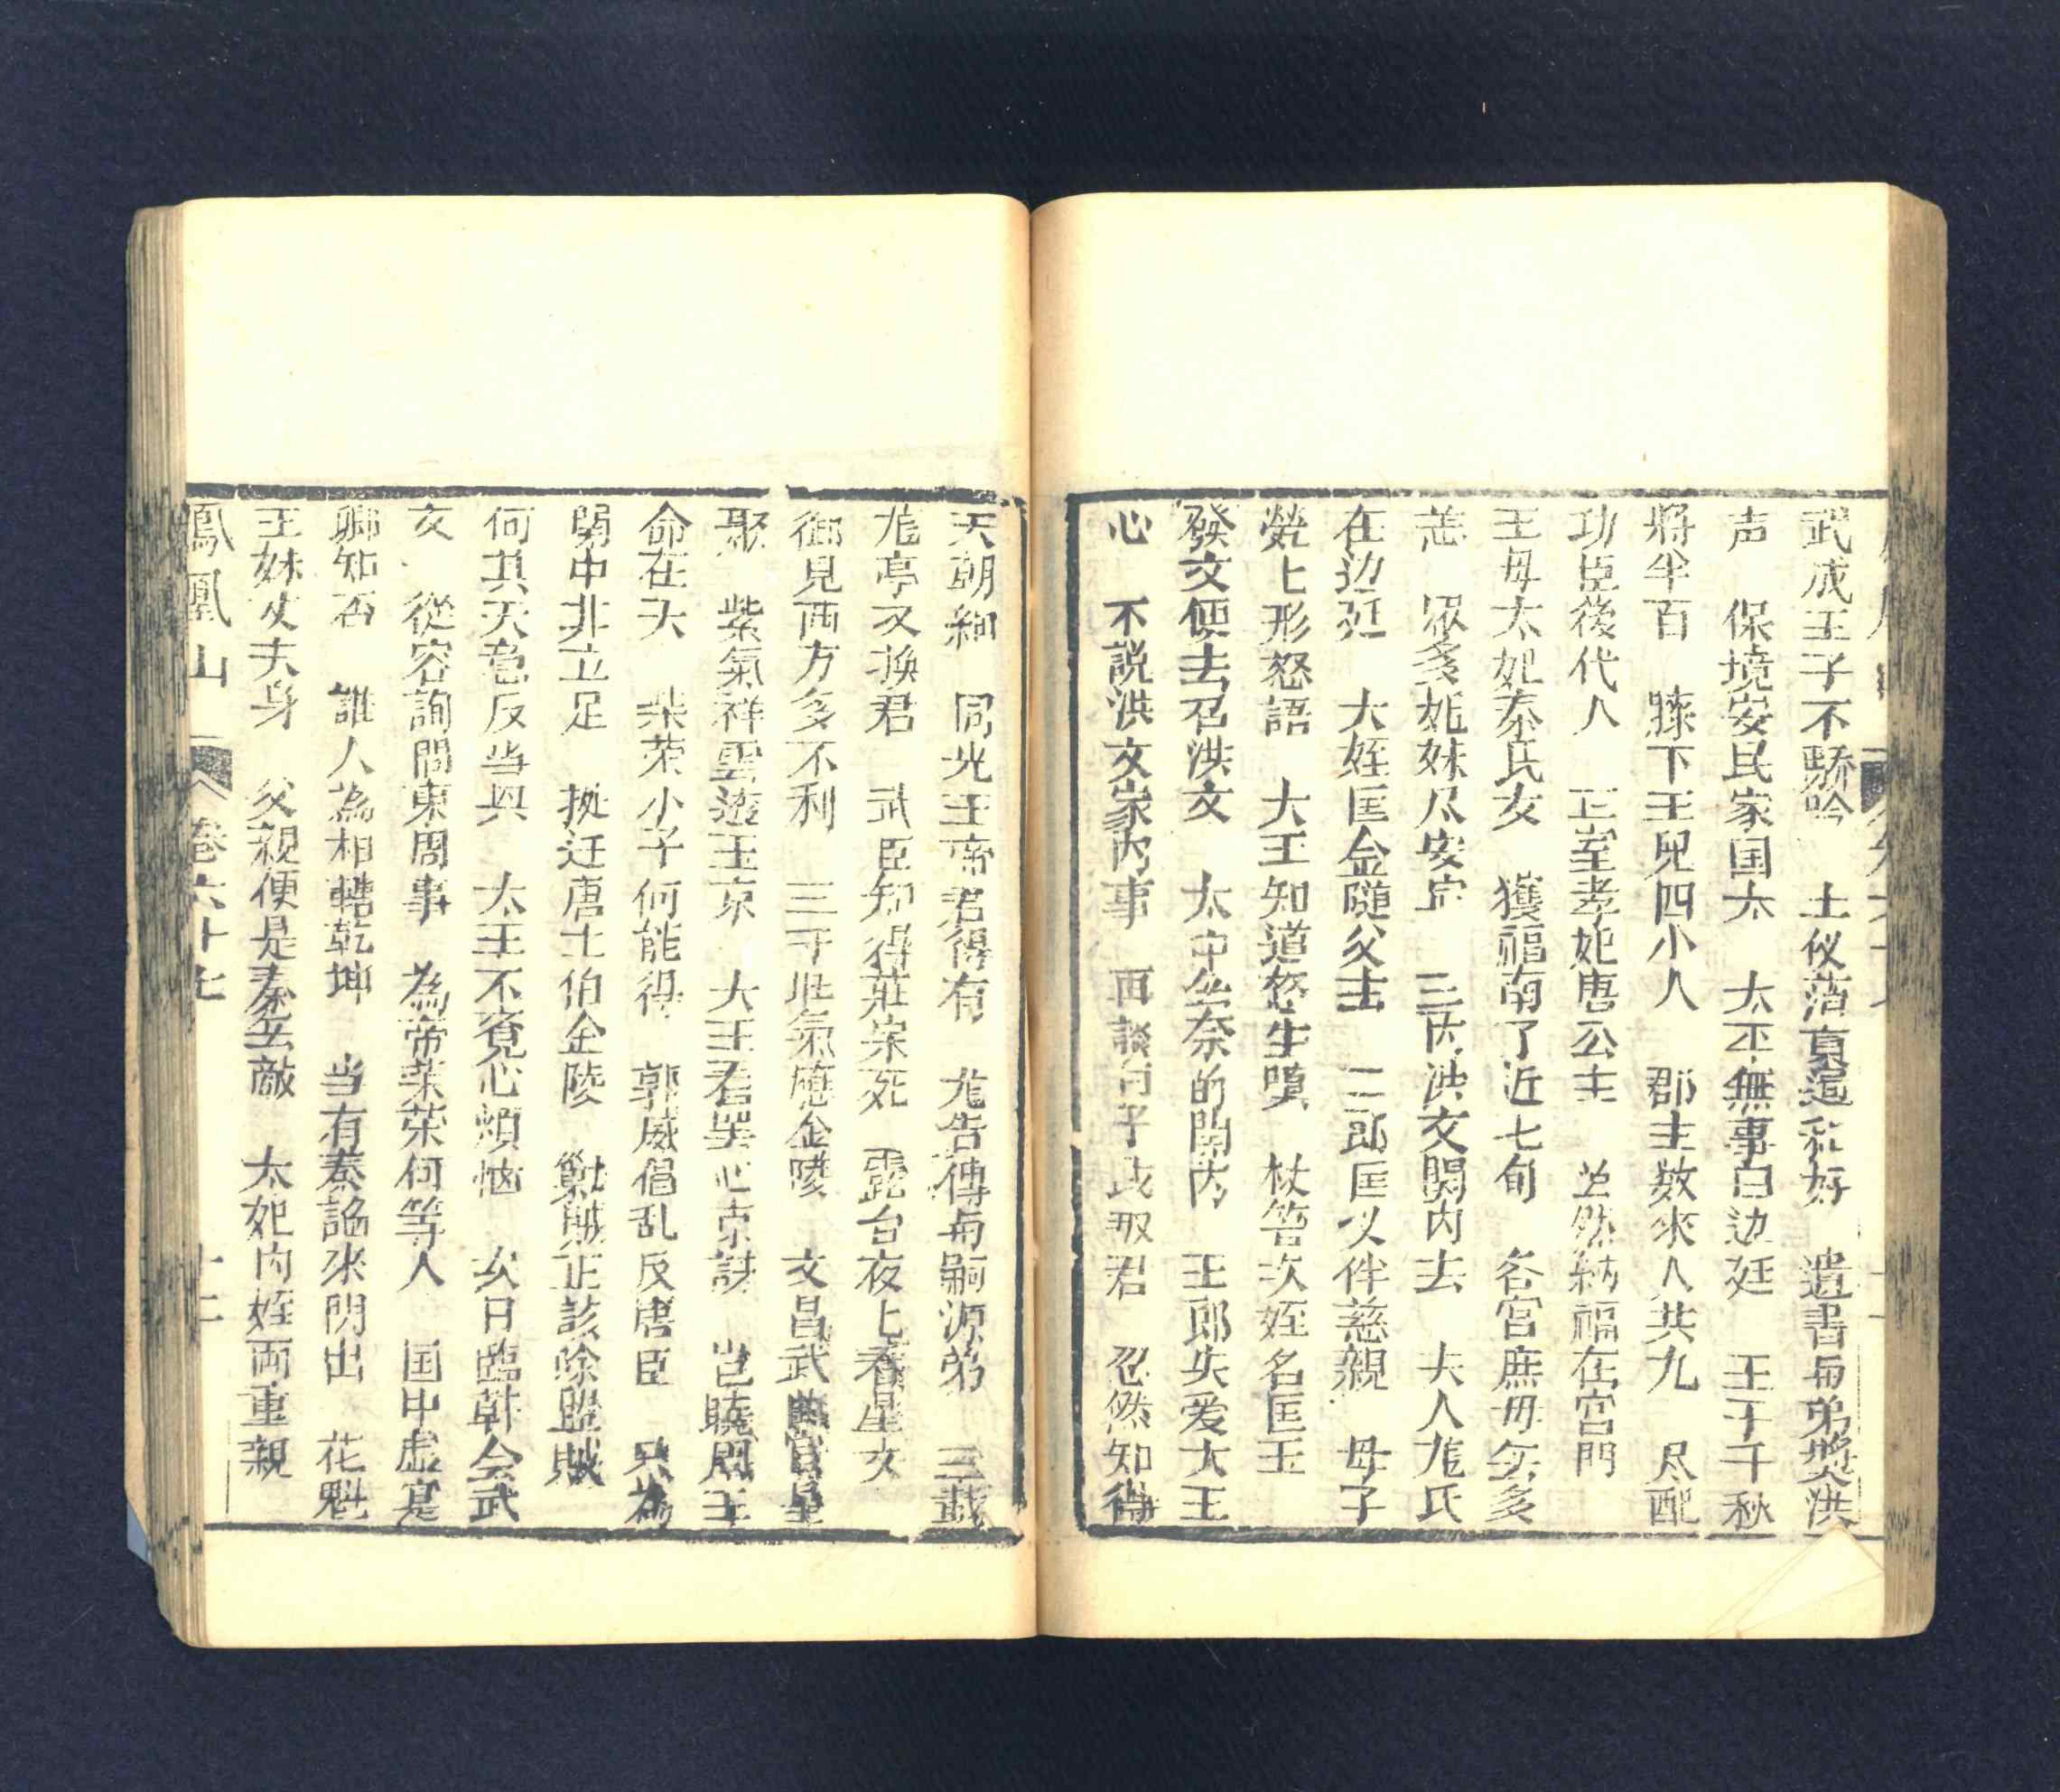 武成王子不驕吟 士仪落真逼和好 遺書与弟獎洪
声 保境安民家国太 太平無事白边廷 王子千秋
將半百 膝下王兒四小人 郡主数來人共九 尽配
功臣後代人 正室孝妃唐公主 公然納福在宫門
王毋太妃秦氏女 獲福南了近七旬 各宫庶毋年多
恙 眾多姐妹尽安宁 三内洪文関内去 夫人尨氏
在边廷 大姪匡金隨父去 二郎匡义伴慈親 毋子
𤇾上形怒語 大王知道怒生嗔 杖笞次姪名匡玉
發文便去召洪文 太中坐奈的関内 王郎失爱大王
心 不説洪文家内事 再談句子武叔君 忽然知得
天朝細 同光王帝君得有 尨告傳与嗣源弟 三載
尨亭又換君 武臣知得莊宗死 露台夜上看星文
御見西方多不利 三千旺氣應金陵 文昌武曲官星
聚 紫氣祥雲遶玉京 大王看罢心京訝 岂曉周王
命在天 柴荣小子何能得 郭威倡乱反唐臣 只為
関中非立足 擬迁唐土伯金陵 弒賊正該除盟賊
何其天意反当興 太王不覔心煩恼 次日臨軒会武
文 從容詢問東周事 為帝柴荣何等人 国中虚寔
聊知否 誰人為相轄乾坤 当有秦諡來閃出 花魁
王妹丈夫身 父親便是秦无敵 太妃内姪両重親
鳳凰山 卷六十七 十二